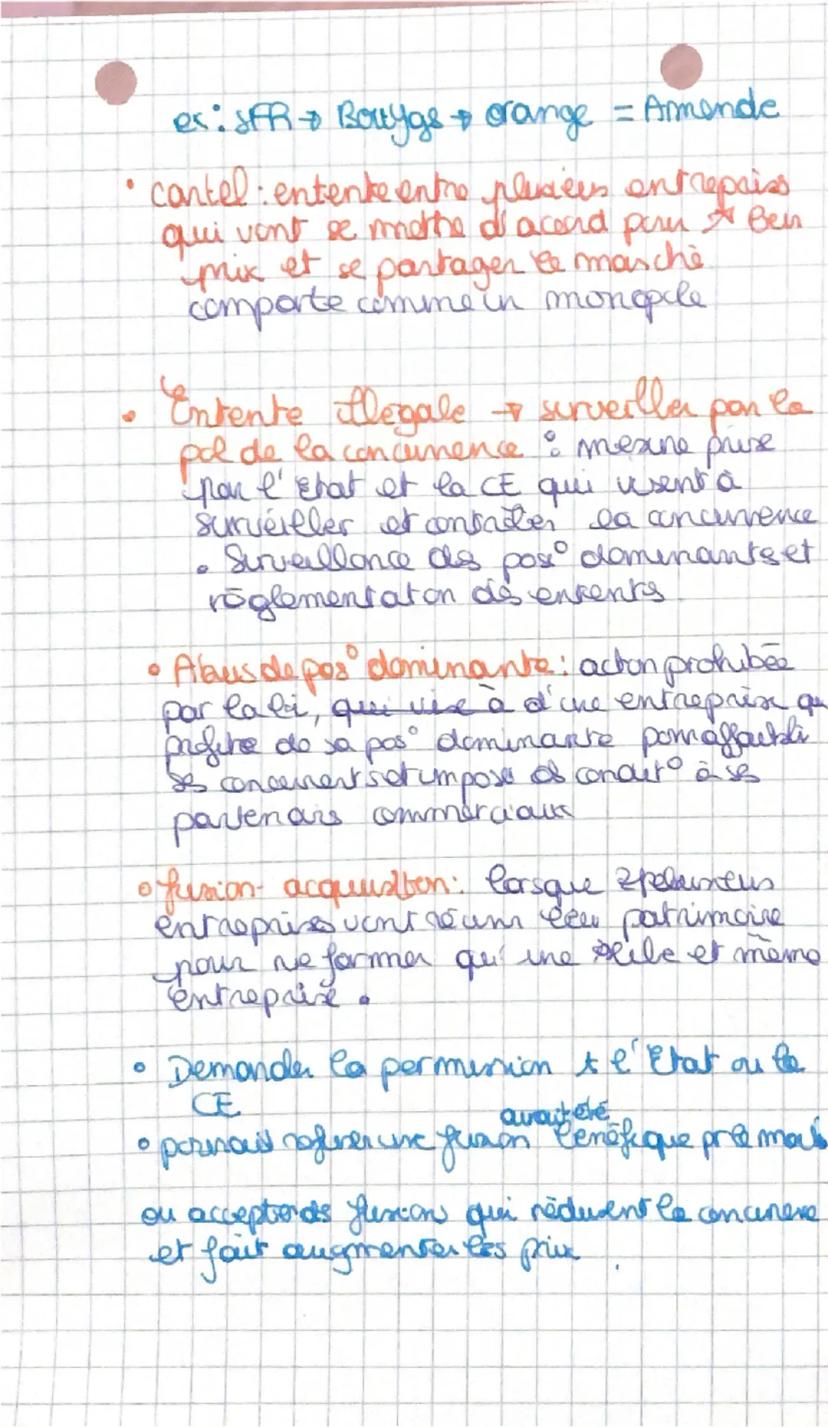 ex: SFR → Bouygs → orange = Amende
• cartel: entente entre plusieurs entrepriss
qui vont se mettre d'acord pour ↗ leur
prix et se partager le marché
comporte comme un monopole
• Entente illégale → surveiller par la
pol de la concurrence : mesure prise
par l'Etat et la CE qui visent à
surveiller et contrôler la concurrence
• Surveillance des pos° dominants et
règlementaton des ententes
• Abus de pos° dominante: acton prohibée
par la loi, qui vise à d'une entreprise qu
profite de sa pos° dominante pour affaibli
ses concurrents et impose des condit° à ses
partenairs commerciaux
• fusion-acquisition: lorsque 2 plusieurs
entreprises vont réunir leur patrimoine
pour ne former qu'une seule et même
entreprise.
• Demander la permission à l'Etat ou la
CE
avait été
• pourrais refuser une fusion bénéfique pr le marché
ou accepter ds fusions qui réduisent la concurrence
et fait augmenter les prix